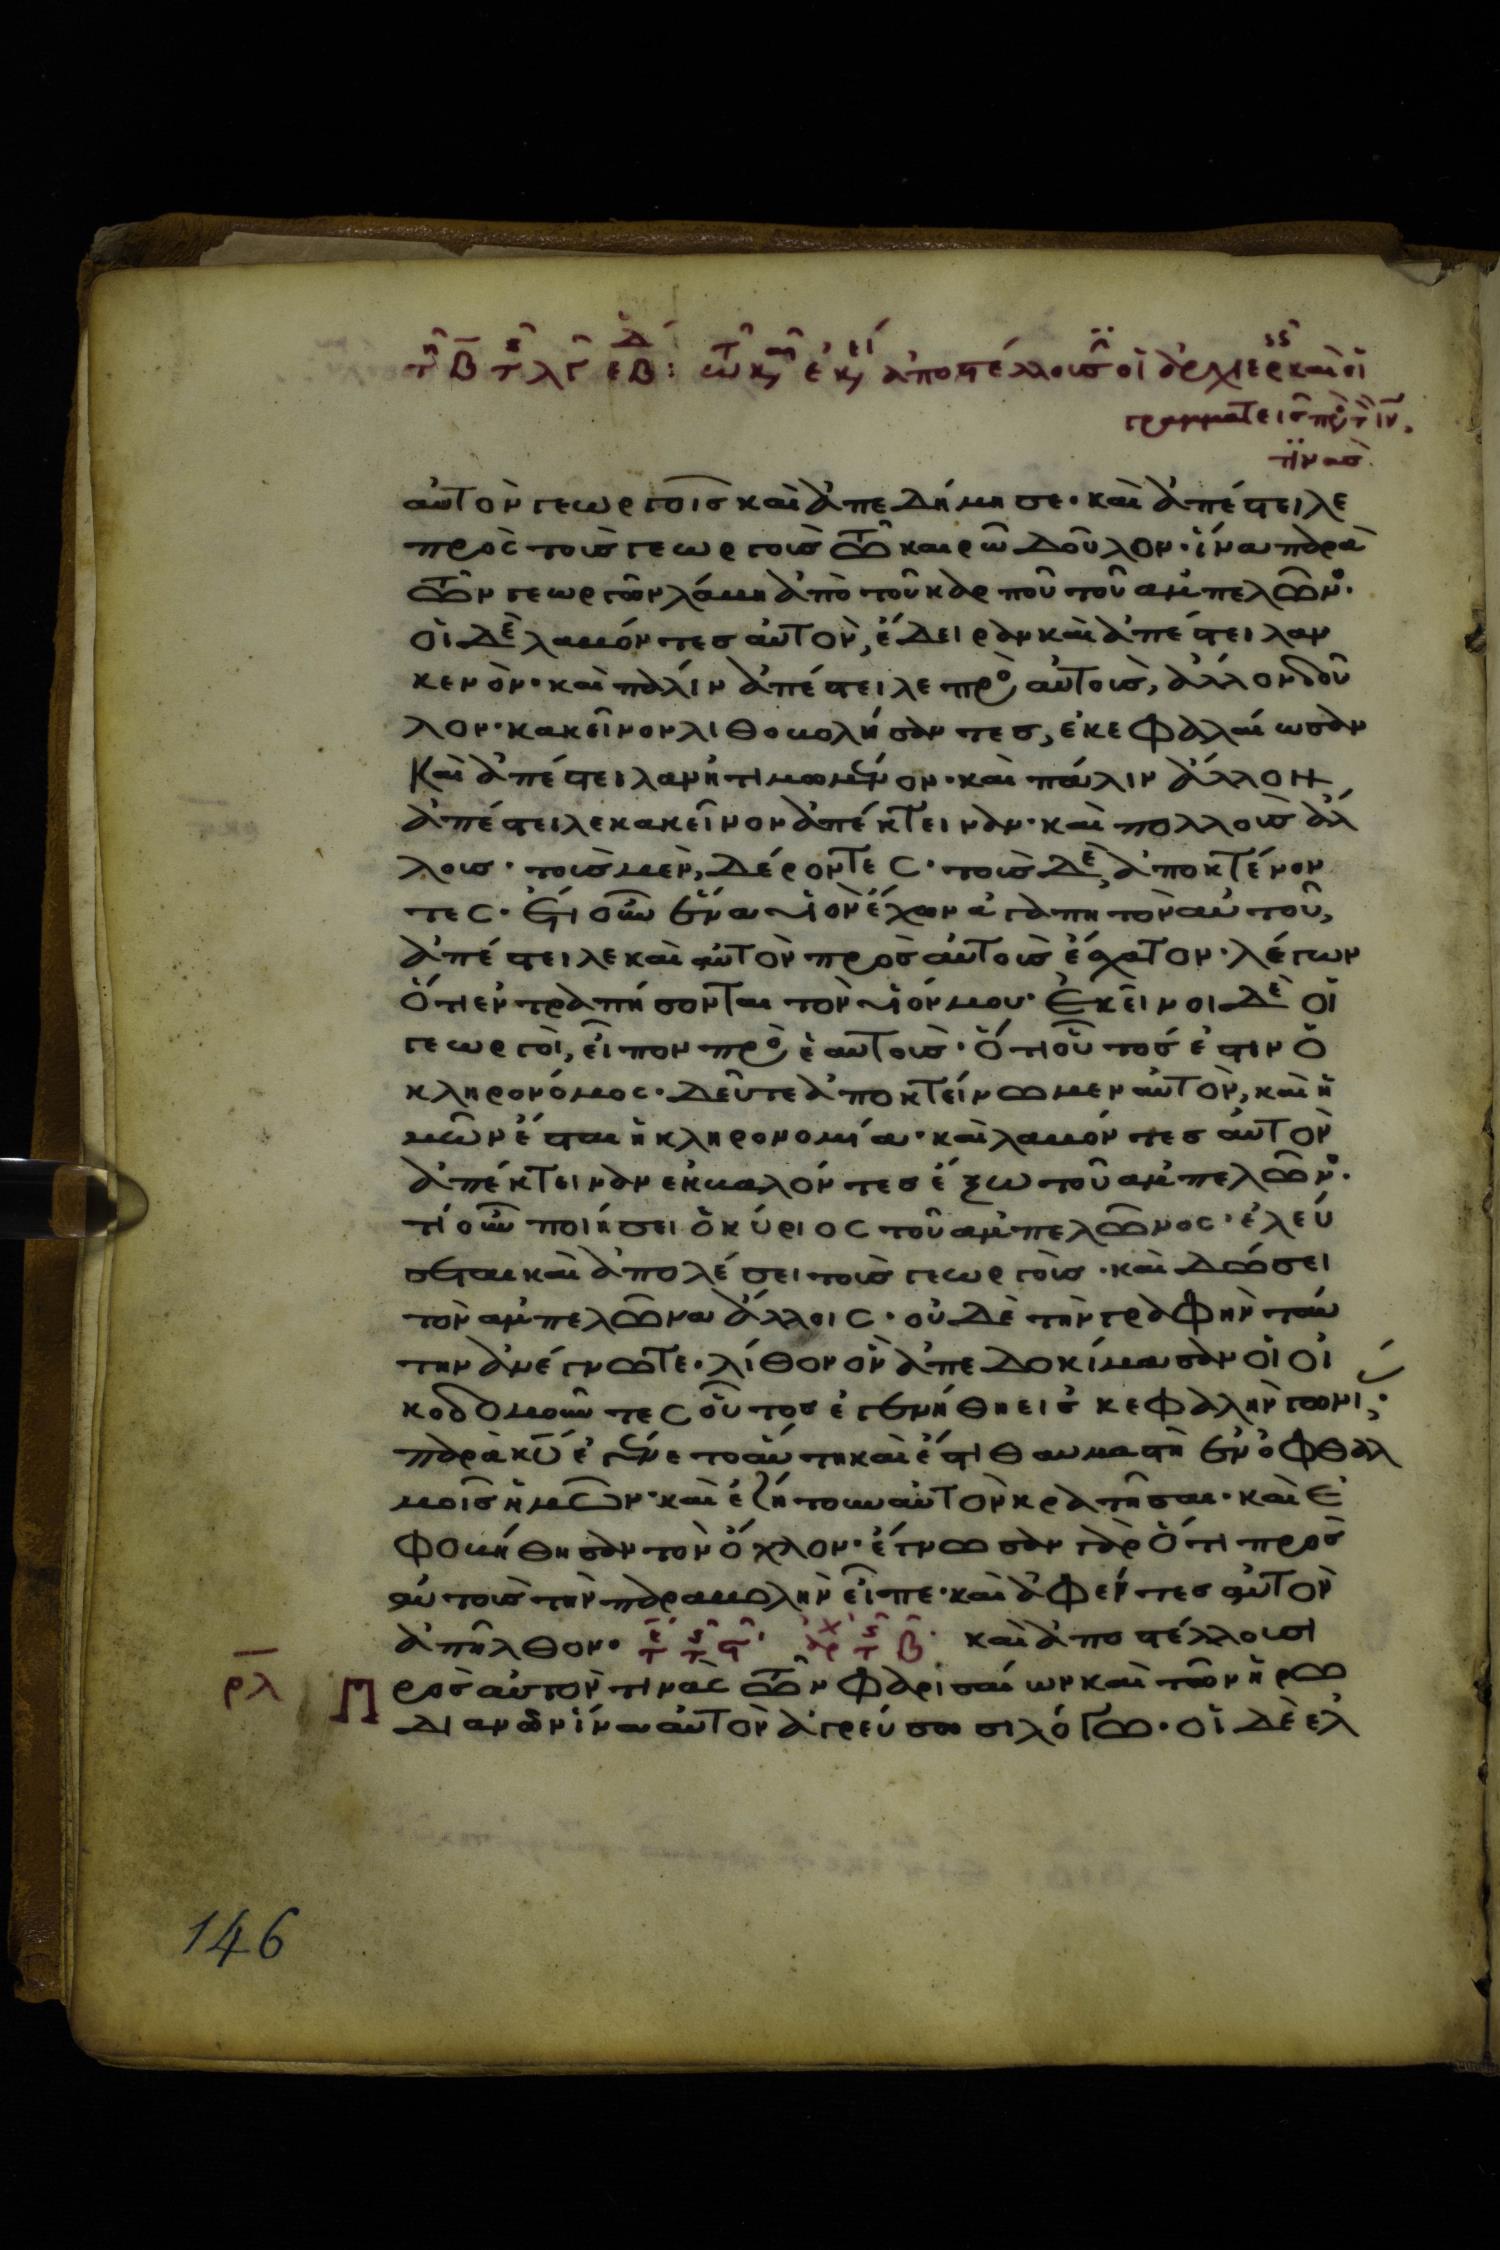 τῇ β τῆς λγ ἑβδ: τῷ κρῷ ἐκείνῳ ἀποστέλλουσιν οἱ ἀρχιερεῖς καὶ οἱ
γραμματεῖς πρὸς τὸν ιν
τινὰς
αὐτὸν γεωργοῖς καὶ ἀπεδήμησε· καὶ ἀπέστειλε
πρὸς τοὺς γεωργοὺς τῶ καιρῶ δοῦλον· ἵνα παρὰ
τῶν γεωργῶν λάβη ἀπὸ τοῦ καρποῦ τοῦ ἀμπελῶνο·
οἱ δὲ λαβόντες αὐτὸν, ἔδειραν καὶ ἀπέστειλαν
κενόν· καὶ πάλιν ἀπέστειλε πρὸς αὐτοὺς, ἄλλον δοῦ
λον· κακεῖνον λιθοβολήσαντες, ἐκεφαλαίωσαν
Καὶ ἀπέστειλαν ἠτιμωμένον· καὶ πάλιν ἄλλον
ἀπέστειλε κακεῖνον ἀπέκτειναν· καὶ πολλοὺς ἄλ
λους· τοὺς μὲν, δέροντες· τοὺς δὲ, ἀποκτένον
τες· Ἔτι οὖν ἕνα υἱὸν ἔχων ἀγαπητὸν αὐτοῦ,
ἀπέστειλε καὶ αὐτὸν πρὸς αὐτοὺς ἔσχατον· λέγων
Ὅτι ἐντραπήσονται τὸν υἱόν μου· Ἐκεῖνοι δὲ οἱ
γεωργοὶ, εἶπον πρὸς ἑαυτοὺς· Ὅτι οὗτός ἐστιν ὁ
κληρονόμος· Δεῦτε ἀποκτείνωμεν αὐτὸν, καὶ ἡ
μῶν ἔσται ἡ κληρονομία· καὶ λαβόντες αὐτὸν
ἀπέκτειναν ἐκβαλόντες ἔξω τοῦ ἀμπελῶνο·
τί οὖν ποιήσει ὁ κύριος τοῦ ἀμπελῶνος· ἐλεύ
σεται καὶ ἀπολέσει τοὺς γεωργοὺς· καὶ Δώσει
τὸν ἀμπελῶνα ἄλλοις· οὐδὲ τὴν γραφὴν ταύ
την ἀνέγνωτε· λίθον ὃν ἀπεδοκίμασαν οἱ οἰ
κοδομοῦντες οὗτος ἐγενήθη εἰς κεφαλὴν γωνί·
παρὰ κυ ἐγένετο αὕτη καὶ ἔστι θαυμαστὴ ἐν ὀφθαλ
μοῖς ἡμῶν· καὶ ἐζήτουν αὐτὸν κρατῆσαι· καὶ ἐ
φοβήθησαν τὸν ὄχλον· ἔγνωσαν γὰρ Ὅτι πρὸς
αὐτοὺς τὴν παραβολὴν εἶπε· καὶ ἀφέντες αὐτὸν
ἀπῆλθον· τέ τῆς ϛ· ἀρχ τῆς β· καὶ ἀποστέλλουσι
ρλ Πρὸς αὐτὸν τινὰς τῶν φαρισαίων καὶ τῶν ἡρω
διανῶν ἵνα αὐτὸν ἀγρεύσωσι λόγω· οἱ δὲ ἐλ
146